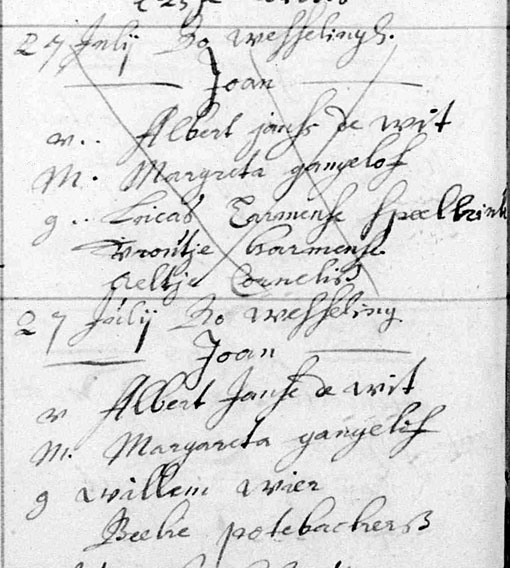 27 Julij Do Wesselingh.
Joan
v.. Albert jansse de wit
M. Margreta gangelof
g.. Lucas Harmense speelbrink
Vrouwtje harmense
Neeltje Cornelisz
27 Julij Do Wesseling
Joan
v Albert Janse de wit
M. Margareta gangelof
g willem wier
Beelie potebackersz